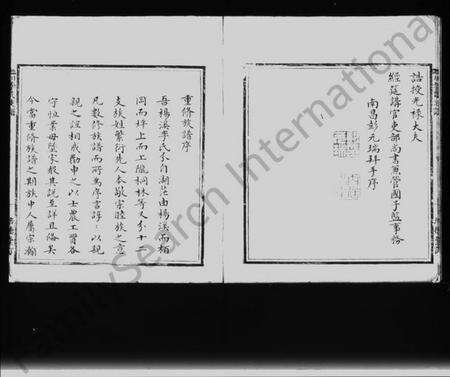 誥授光祿大夫
經筵講官吏部尚書兼管國子監事務
南昌彭元瑞拜手序
重修族譜序
吾楊溪李氏分自湖茫由楊溪而栢
岡而坪上而上隴桐林等又分十二
支族姓繁衍先人本敬宗睦族之意
凡數修族譜而所為序言諄諄以親
親之誼相感勸申之以士農工賈各
守恒業毋墮家聲其説至詳且備矣
今當重修族譜之期族中人屬宗瀚
FamilySearch International